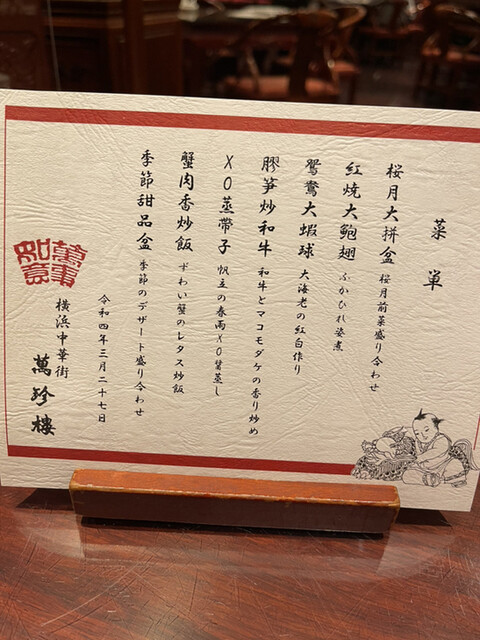 菜単
桜月大拼盆 桜月前菜盛り合わせ
紅焼大鮑翅 ふかひれ姿煮
鴛鴦大蝦球 大海老の紅白作り
膠笋炒和牛 和牛とマコモダケの香り炒め
XO蒸帶子 帆立の春雨XO醤蒸し
蟹肉香炒飯 ずわい蟹のレタス炒飯
季節甜品盆 季節のデザート盛り合わせ
令和四年三月二十七日
横浜中華街
萬珍樓
萬事如意